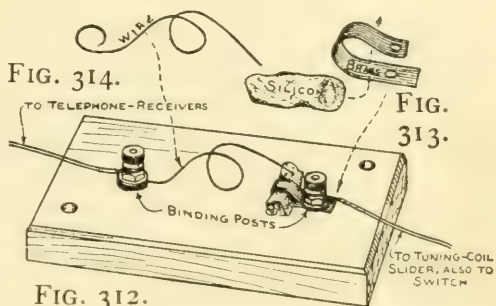 WIRE
FIG. 314.
SILICON
BRASS
FIG.
313.
TO TELEPHONE-RECEIVERS
BINDING POSTS
TO TUNING-COIL
SLIDER, ALSO TO
SWITCH
FIG. 312.